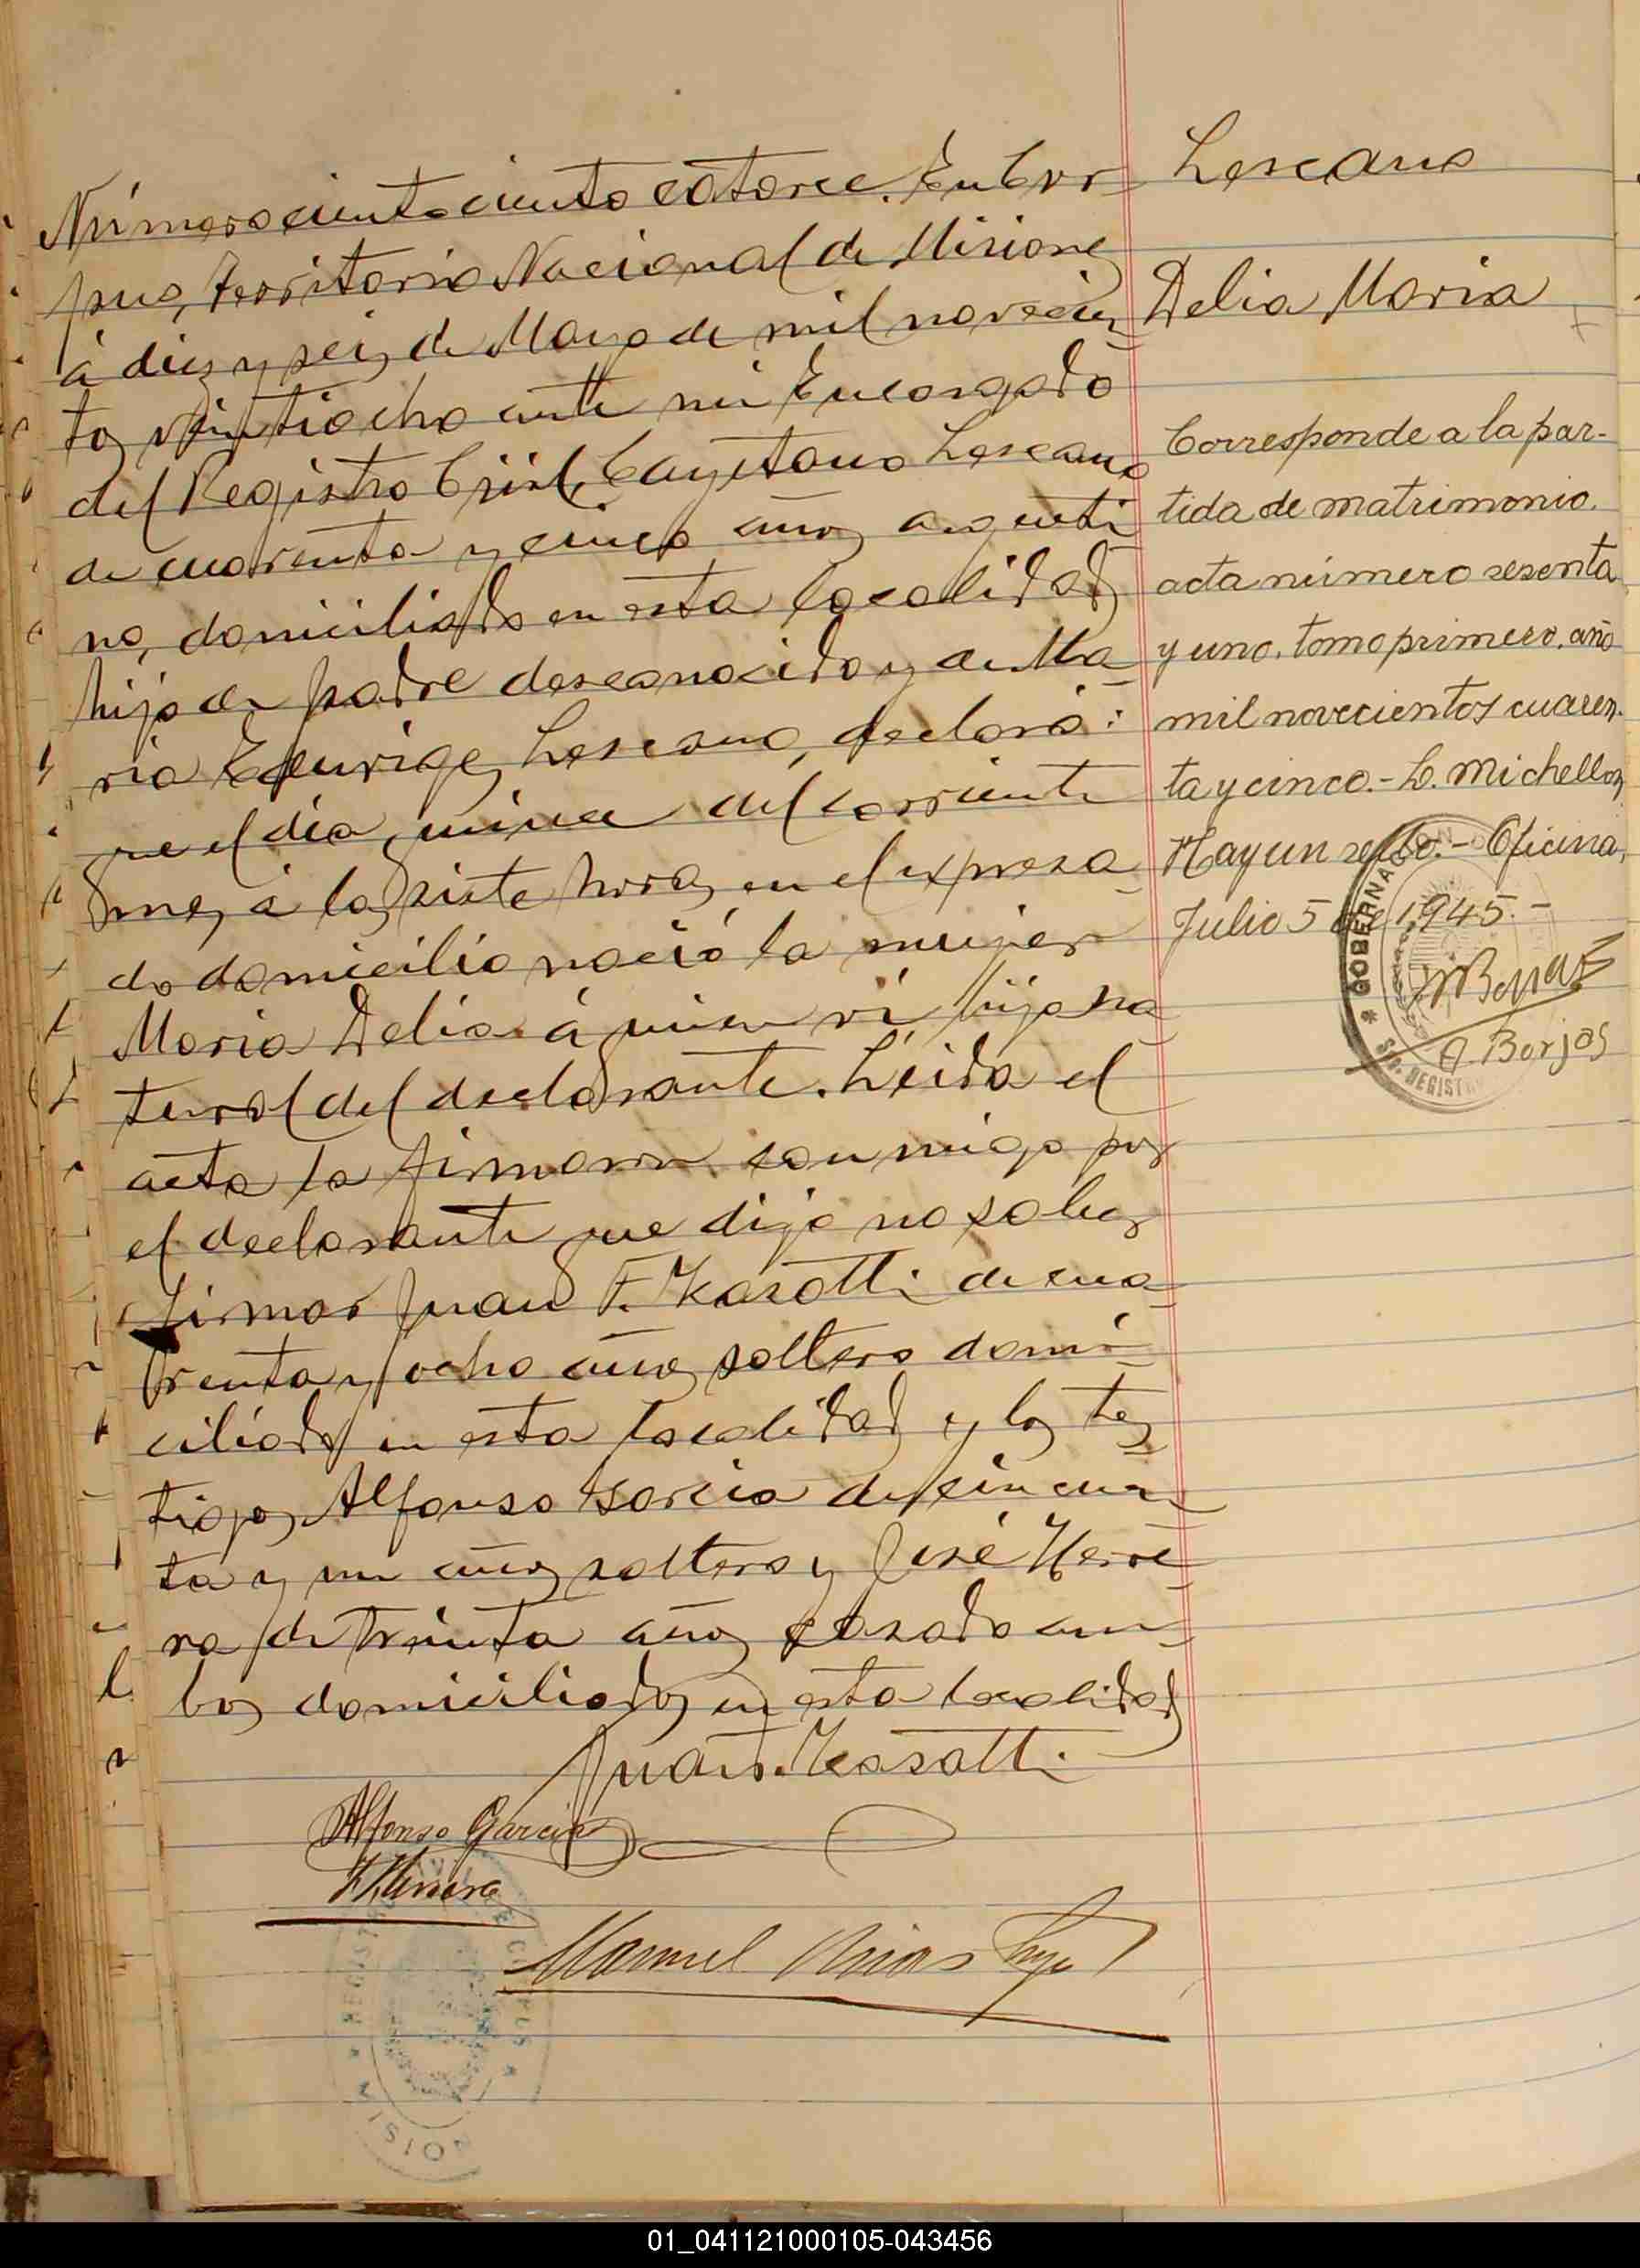 Número ciento ciento catorce. En Cor
pus, Territorio Nacional de Misiones
á diez y seis de Mayo de mil novecien
tos veintiocho ante mi Encargado
del Registro Civil, Cayetano Lescano
de cuarenta y cinco años argenti
no, domiciliado en esta localidad
hijo de padre desconocido y de Ma
ria Lescano, declaró:
que el día quince del corriente
mes á las siete horas en el expresa
do domicilio nació la mujer
Maria Delia á quien ví hija na
tural del declarante. Leida el
acta la firmaron conmigo por
el declarante que dijo no saber
firmar Juan F. Kasatti de cua
renta y ocho años soltero domi
ciliado en esta localidad y los tes
tigos Alfonso Garcia de cincuen
ta y un años soltero y José Herre
ra de treinta años casado am
bos domiciliados en esta localidad
Juan F. Kasatti
Alfonso Garcia
J. Herrera
Manuel
REGISTRO CIVIL DE CORPUS
MISIONES
Lescano
Delia Maria
Corresponde a la par-
tida de matrimonio.
acta número sesenta
y uno, tomo primero, año
mil novecientos cuaren-
ta y cinco.- L. Michellon,
Hay un sello.- Oficina,
Julio 5 de 1945.-
A. Borjas
GOBERNACION
REGISTRO
01_041121000105-043456